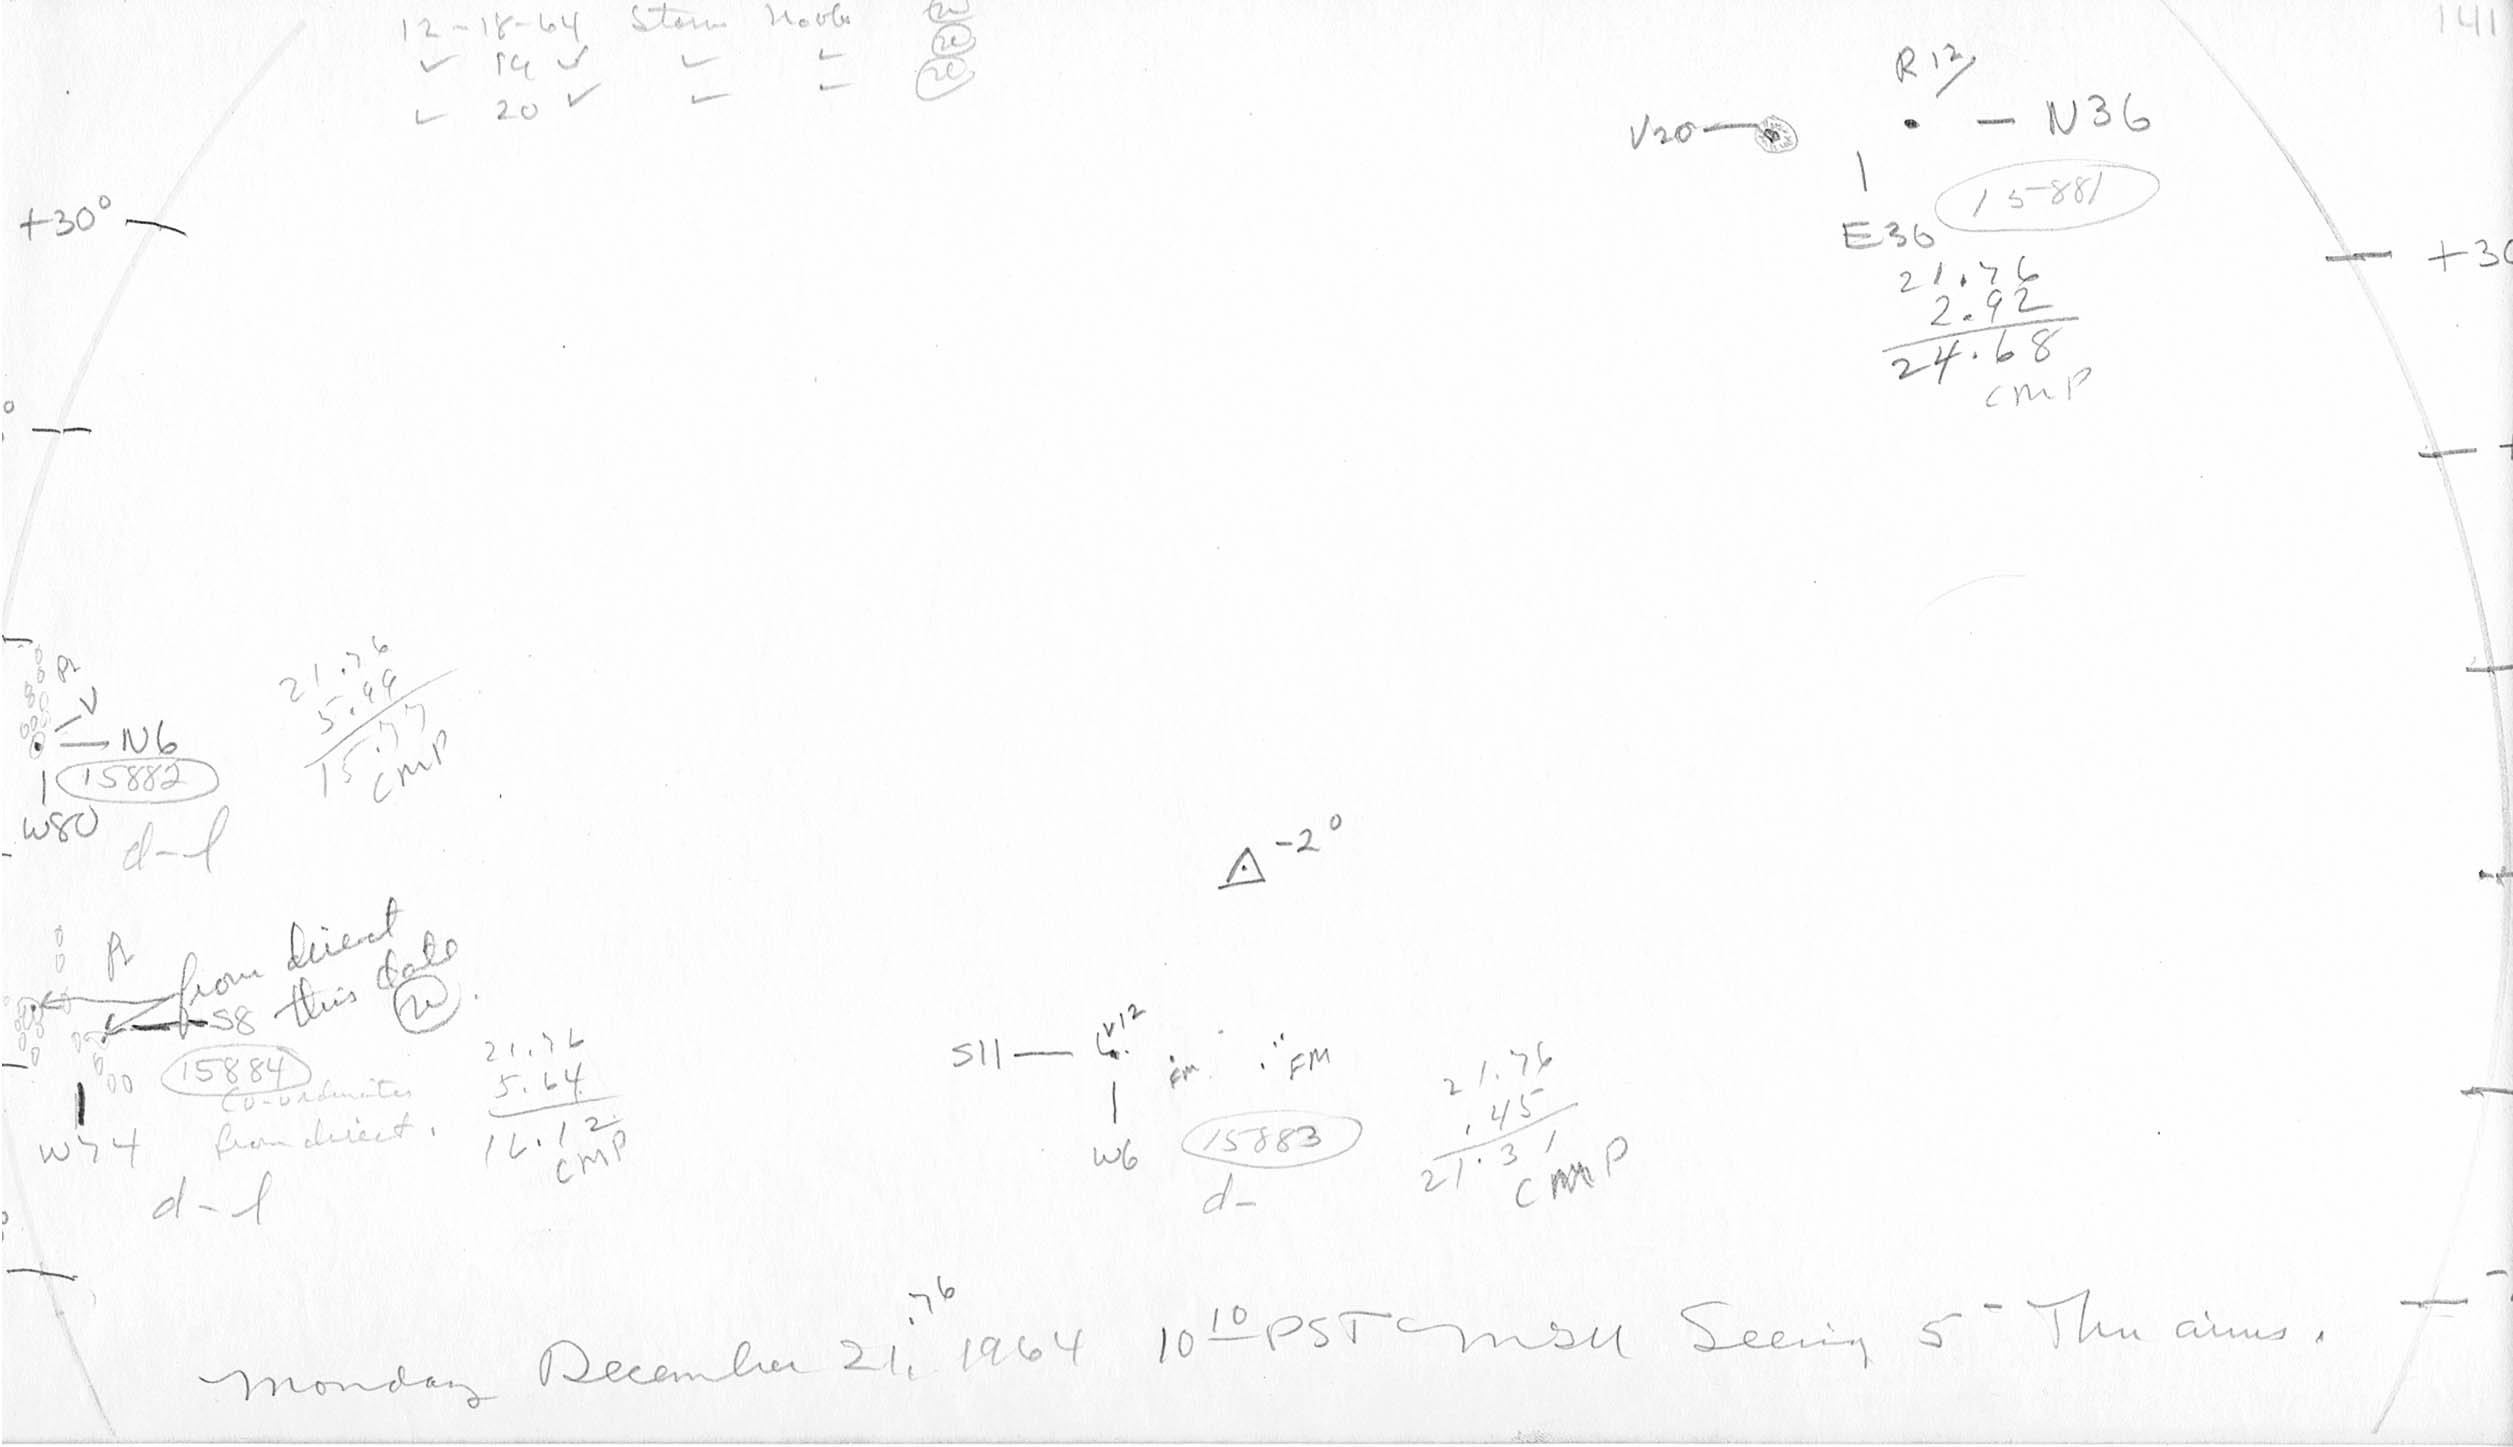 141
12-18-64 Storm No obs
✓ 19 ✓ ✓ ✓
✓ 20 ✓ ✓ ✓
R12
V20 — N36
15881
E36
21.76
2.92
24.68
CMP
+30°
+30
R
V
N6
15882
W80
d-l
21.76
5.99
15.77
CMP
-2°
R
from direct
this date
S8
15884
Co-ordinates
from direct.
W74
d-l
21.76
5.64
16.12
CMP
S11 — V12
FM FM
W6
15883
d-
21.76
.45
21.31
CMP
Monday December 21, .76 1964 10 10 PST Seeing 5- Thru cirrus.